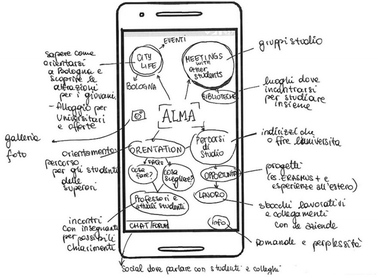 EVENTI
CITY
LIFE
BOLOGNA
MEETINGS
with
other
students
BIBLIOTECHE
ALMA
ORIENTATION
Percorsi
di
Studio
cosa
fare?
cosa
scegliere?
OPPORTUNITÀ
LAVORO
Professori e
altri studenti
CHAT/FORUM
info
sapere come
orientarsi
a Bologna e
scoprire le
attrazioni
per i giovani
- Alloggio per
Universitari
e offerte
galleria
foto
orientamento
percorso
per gli studenti
delle
superiori
incontri
con insegnanti
per possibili
chiarimenti
gruppi studio
luoghi dove
incontrarsi
per studiare
insieme
indirizzi che
offre l'università
progetti
(es. ERASMUS + e
esperienze all'estero)
sbocchi lavorativi
e collegamenti
con le aziende
domande e perplessità
Social dove parlare con studenti e colleghi